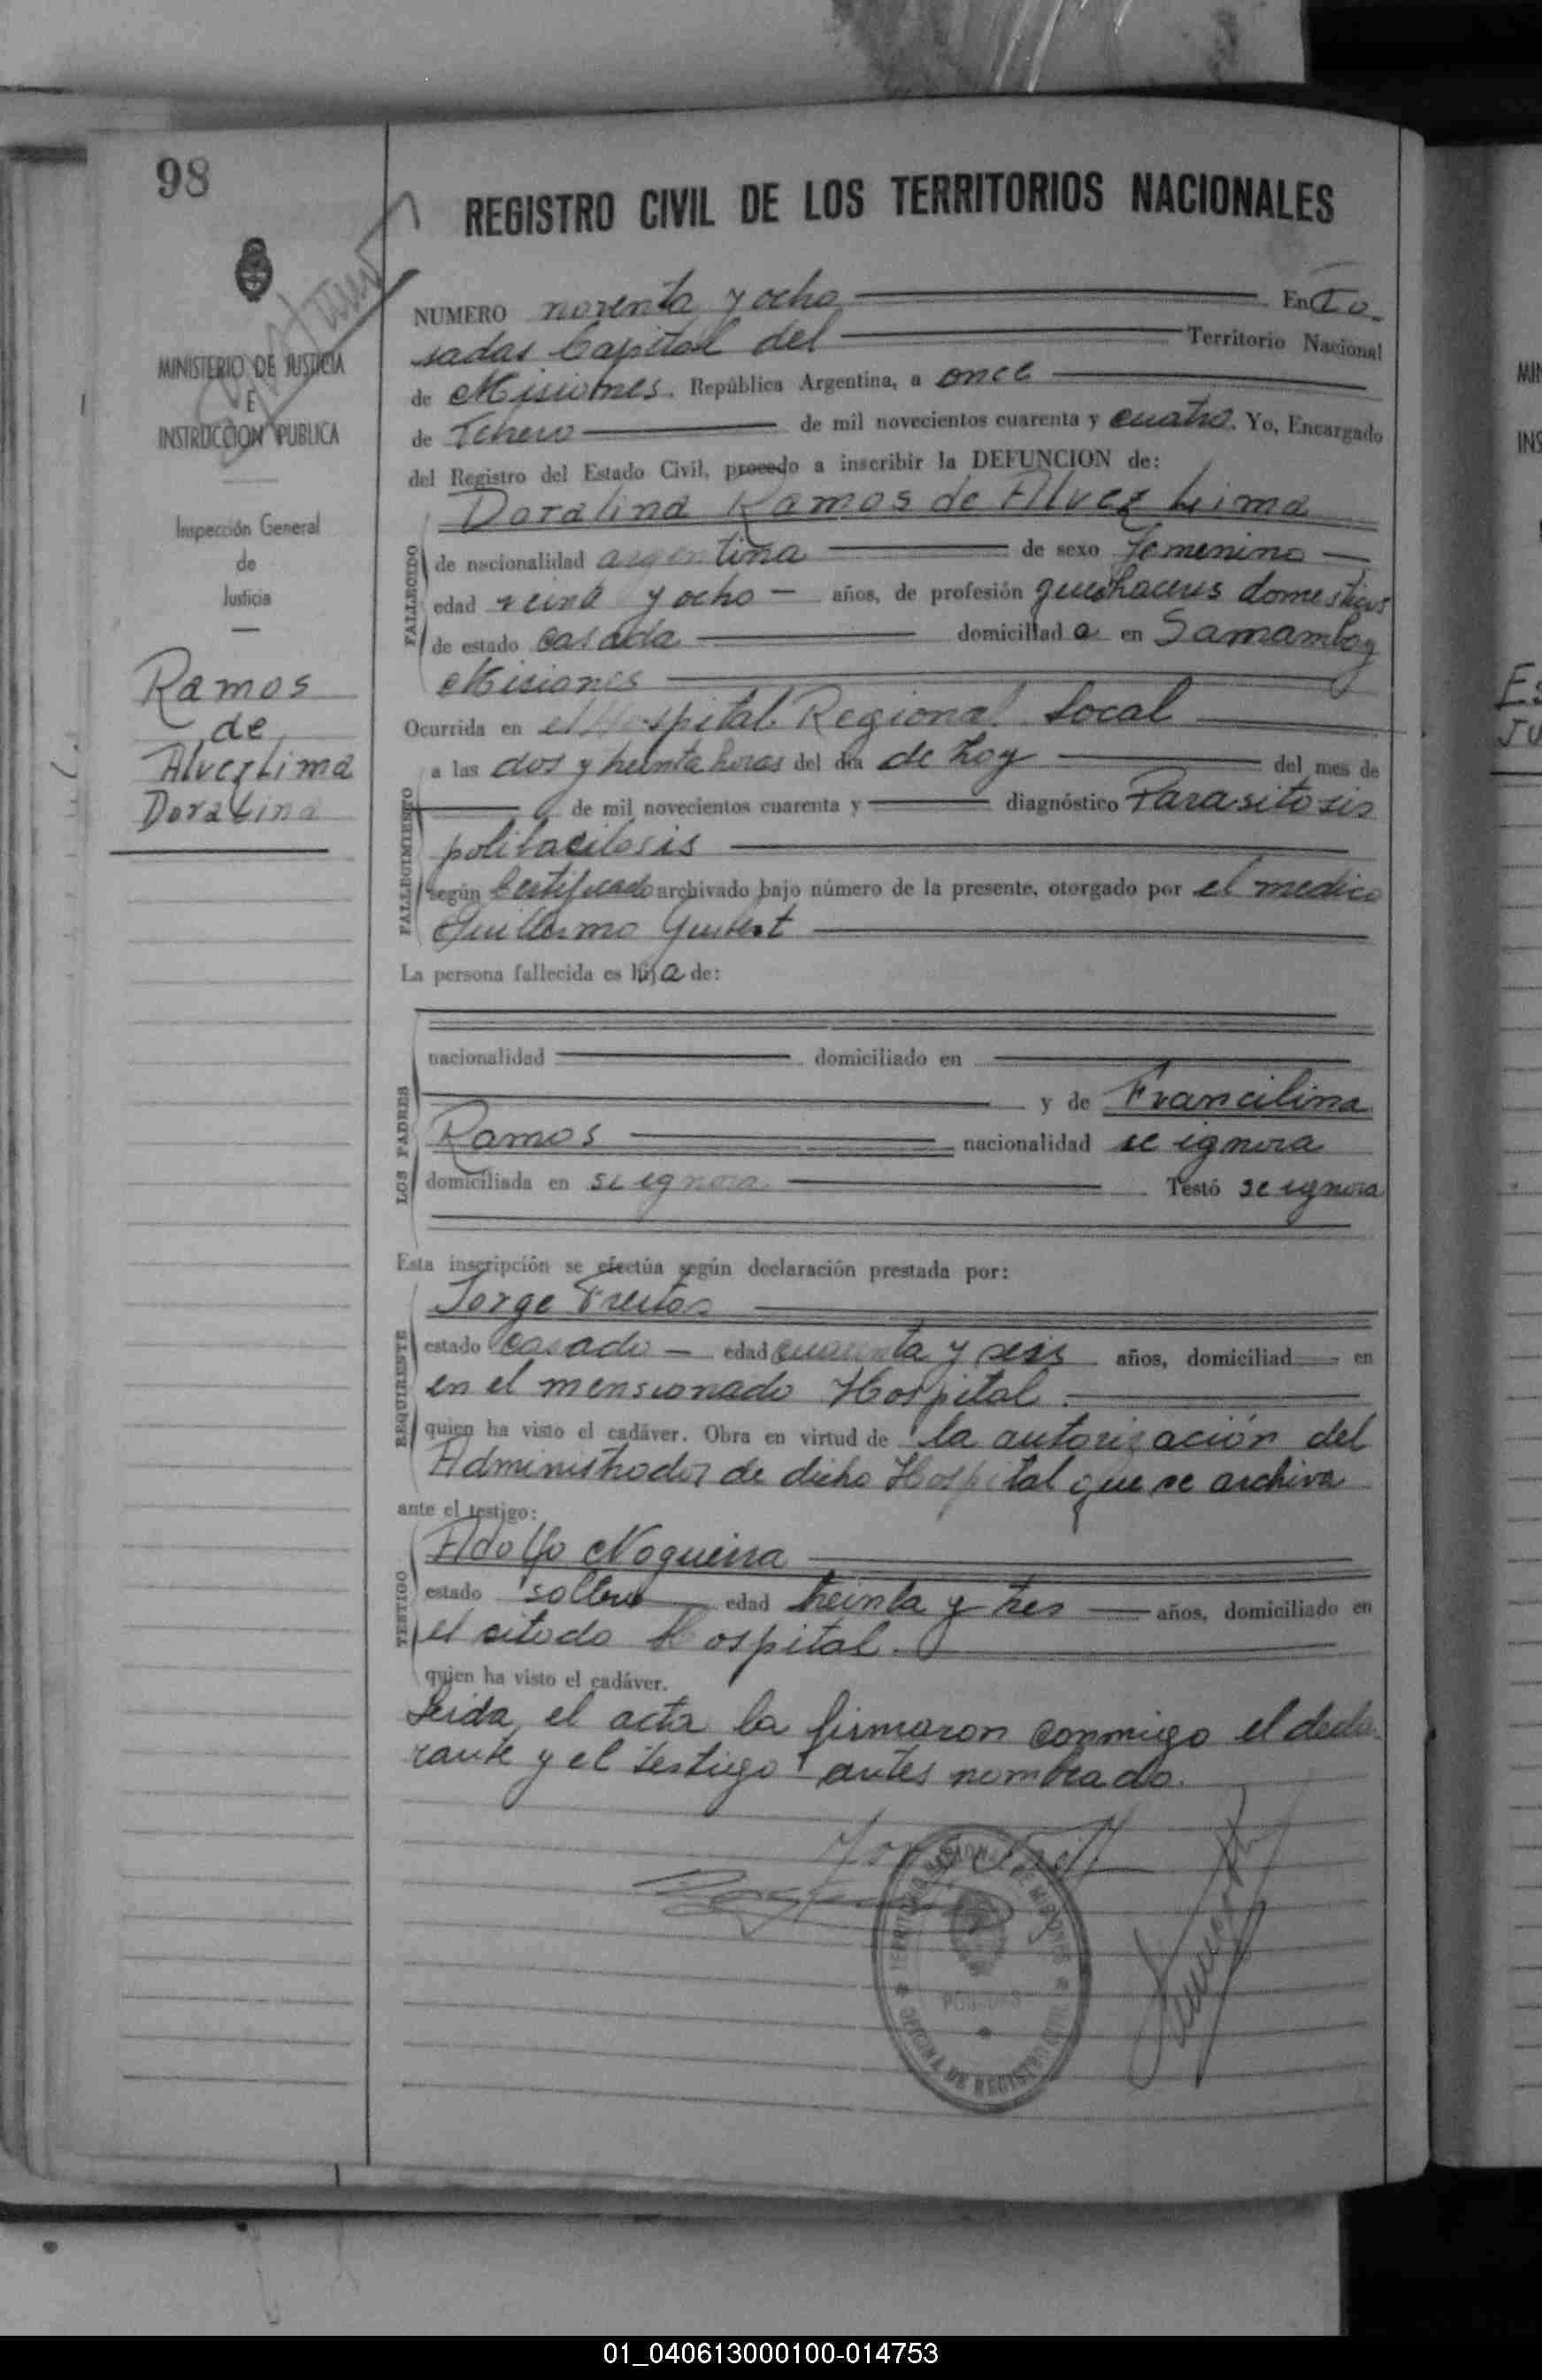 98
REGISTRO CIVIL DE LOS TERRITORIOS NACIONALES
MINISTERIO DE JUSTICIA
E
INSTRUCCION PUBLICA
Inspección General
de
Justicia
Ramos
de
Alvez Lima
Doralina
NUMERO noventa y ocho En Po
sadas Capital del Territorio Nacional
de Misiones. República Argentina, a once
de Febrero de mil novecientos cuarenta y cuatro. Yo, Encargado
del Registro del Estado Civil, procedo a inscribir la DEFUNCION de:
Doralina Ramos de Alvez Lima
FALLECIDO
de nacionalidad argentina de sexo femenino
edad veinti y ocho años, de profesión quehaceres domesticos
de estado casada domiciliad a en Samambay
Misiones
Ocurrida en el Hospital Regional Local
FALLECIMIENTO
a las dos y treinta horas del día de hoy del mes de
de mil novecientos cuarenta y diagnóstico Parasitosis
según Certificado archivado bajo número de la presente, otorgado por el medico
Guillermo
La persona fallecida es hij a de:
LOS PADRES
nacionalidad domiciliado en
y de Francilina
Ramos nacionalidad se ignora
domiciliada en se ignora Testó se ignora
Esta inscripción se efectúa según declaración prestada por:
REQUIRENTE
Jorge Freitas
estado casado edad cuarenta y seis años, domiciliad en
en el mensionado Hospital.
quien ha visto el cadáver. Obra en virtud de la autorización del
Administrador de dicho Hospital que se archiva
ante el testigo:
TESTIGO
Adolfo Nogueira
estado soltero edad treinta y tres años, domiciliado en
el sitado Hospital.
quien ha visto el cadáver.
Leida, el acta la firmaron conmigo el decla
rante y el testigo antes nombrado.
TERRITORIO NACIONAL DE MISIONES
POSADAS
OFICINA DE REGISTRO CIVIL
MIN
INS
01_040613000100-014753